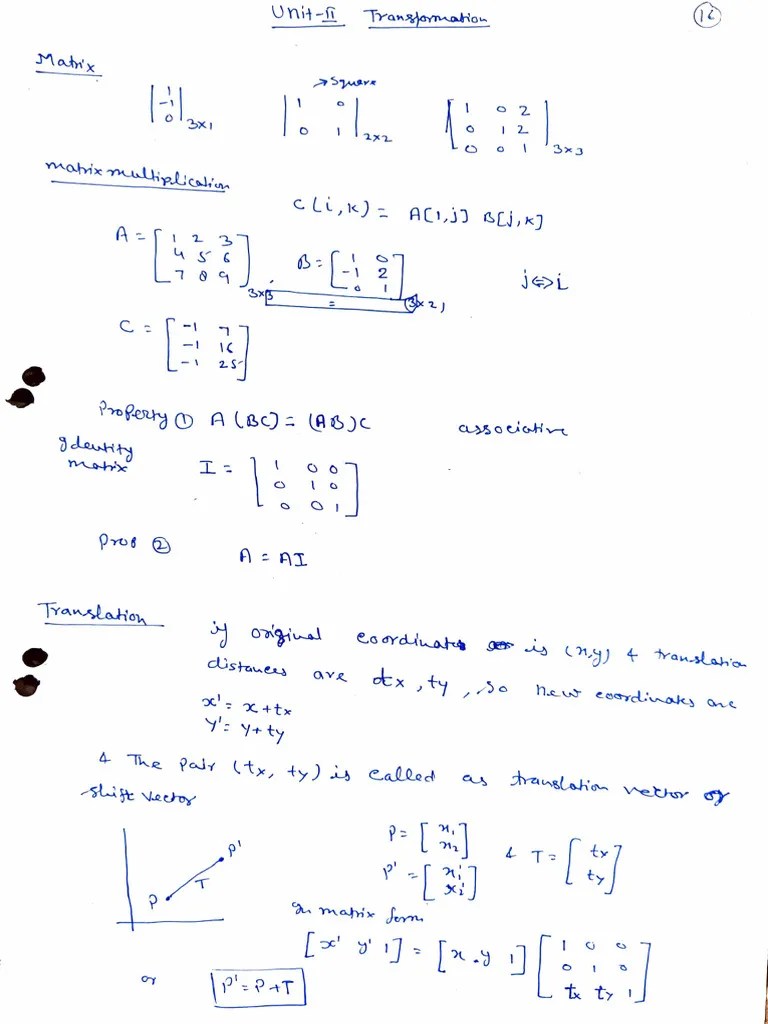 Unit-II Transformation
16
Matrix
→ Square
| 1 |
| -1 |
| 0 | 3×1
| 1 0 |
| 0 1 | 2×2
[ 1 0 2 ]
[ 0 1 2 ]
[ 0 0 1 ] 3×3
matrix multiplication
C(i,k) = A[1,j] B[j,k]
A = [ 1 2 3 ]
[ 4 5 6 ]
[ 7 8 9 ] 3×3
B = [ 1 0 ]
[ -1 2 ]
[ 0 1 ] 3×2
=
j⇔i
C = [ -1 7 ]
[ -1 16 ]
[ -1 25 ]
Property ① A(BC) = (AB)C associative
Identity
matrix
I = [ 1 0 0 ]
[ 0 1 0 ]
[ 0 0 1 ]
Prop ② A = AI
Translation
if original coordinates is (x,y) & translation
distances are tx, ty, so new coordinates are
x' = x + tx
y' = y + ty
& The pair (tx, ty) is called as translation vector or
shift vector
P T P'
P = [ x1 ]
[ x2 ]
& T = [ tx ]
[ ty ]
P' = [ x1' ]
[ x2' ]
In matrix form
[x' y' 1] = [x y 1] [ 1 0 0 ]
[ 0 1 0 ]
[ tx ty 1 ]
or P' = P + T